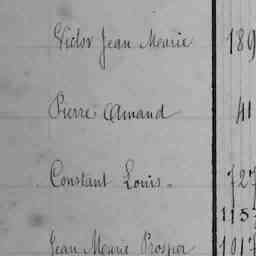 Victor Jean Marie 189
Pierre Amand 41
Constant Louis. 727
1153
Jean Marie Prosper 1017